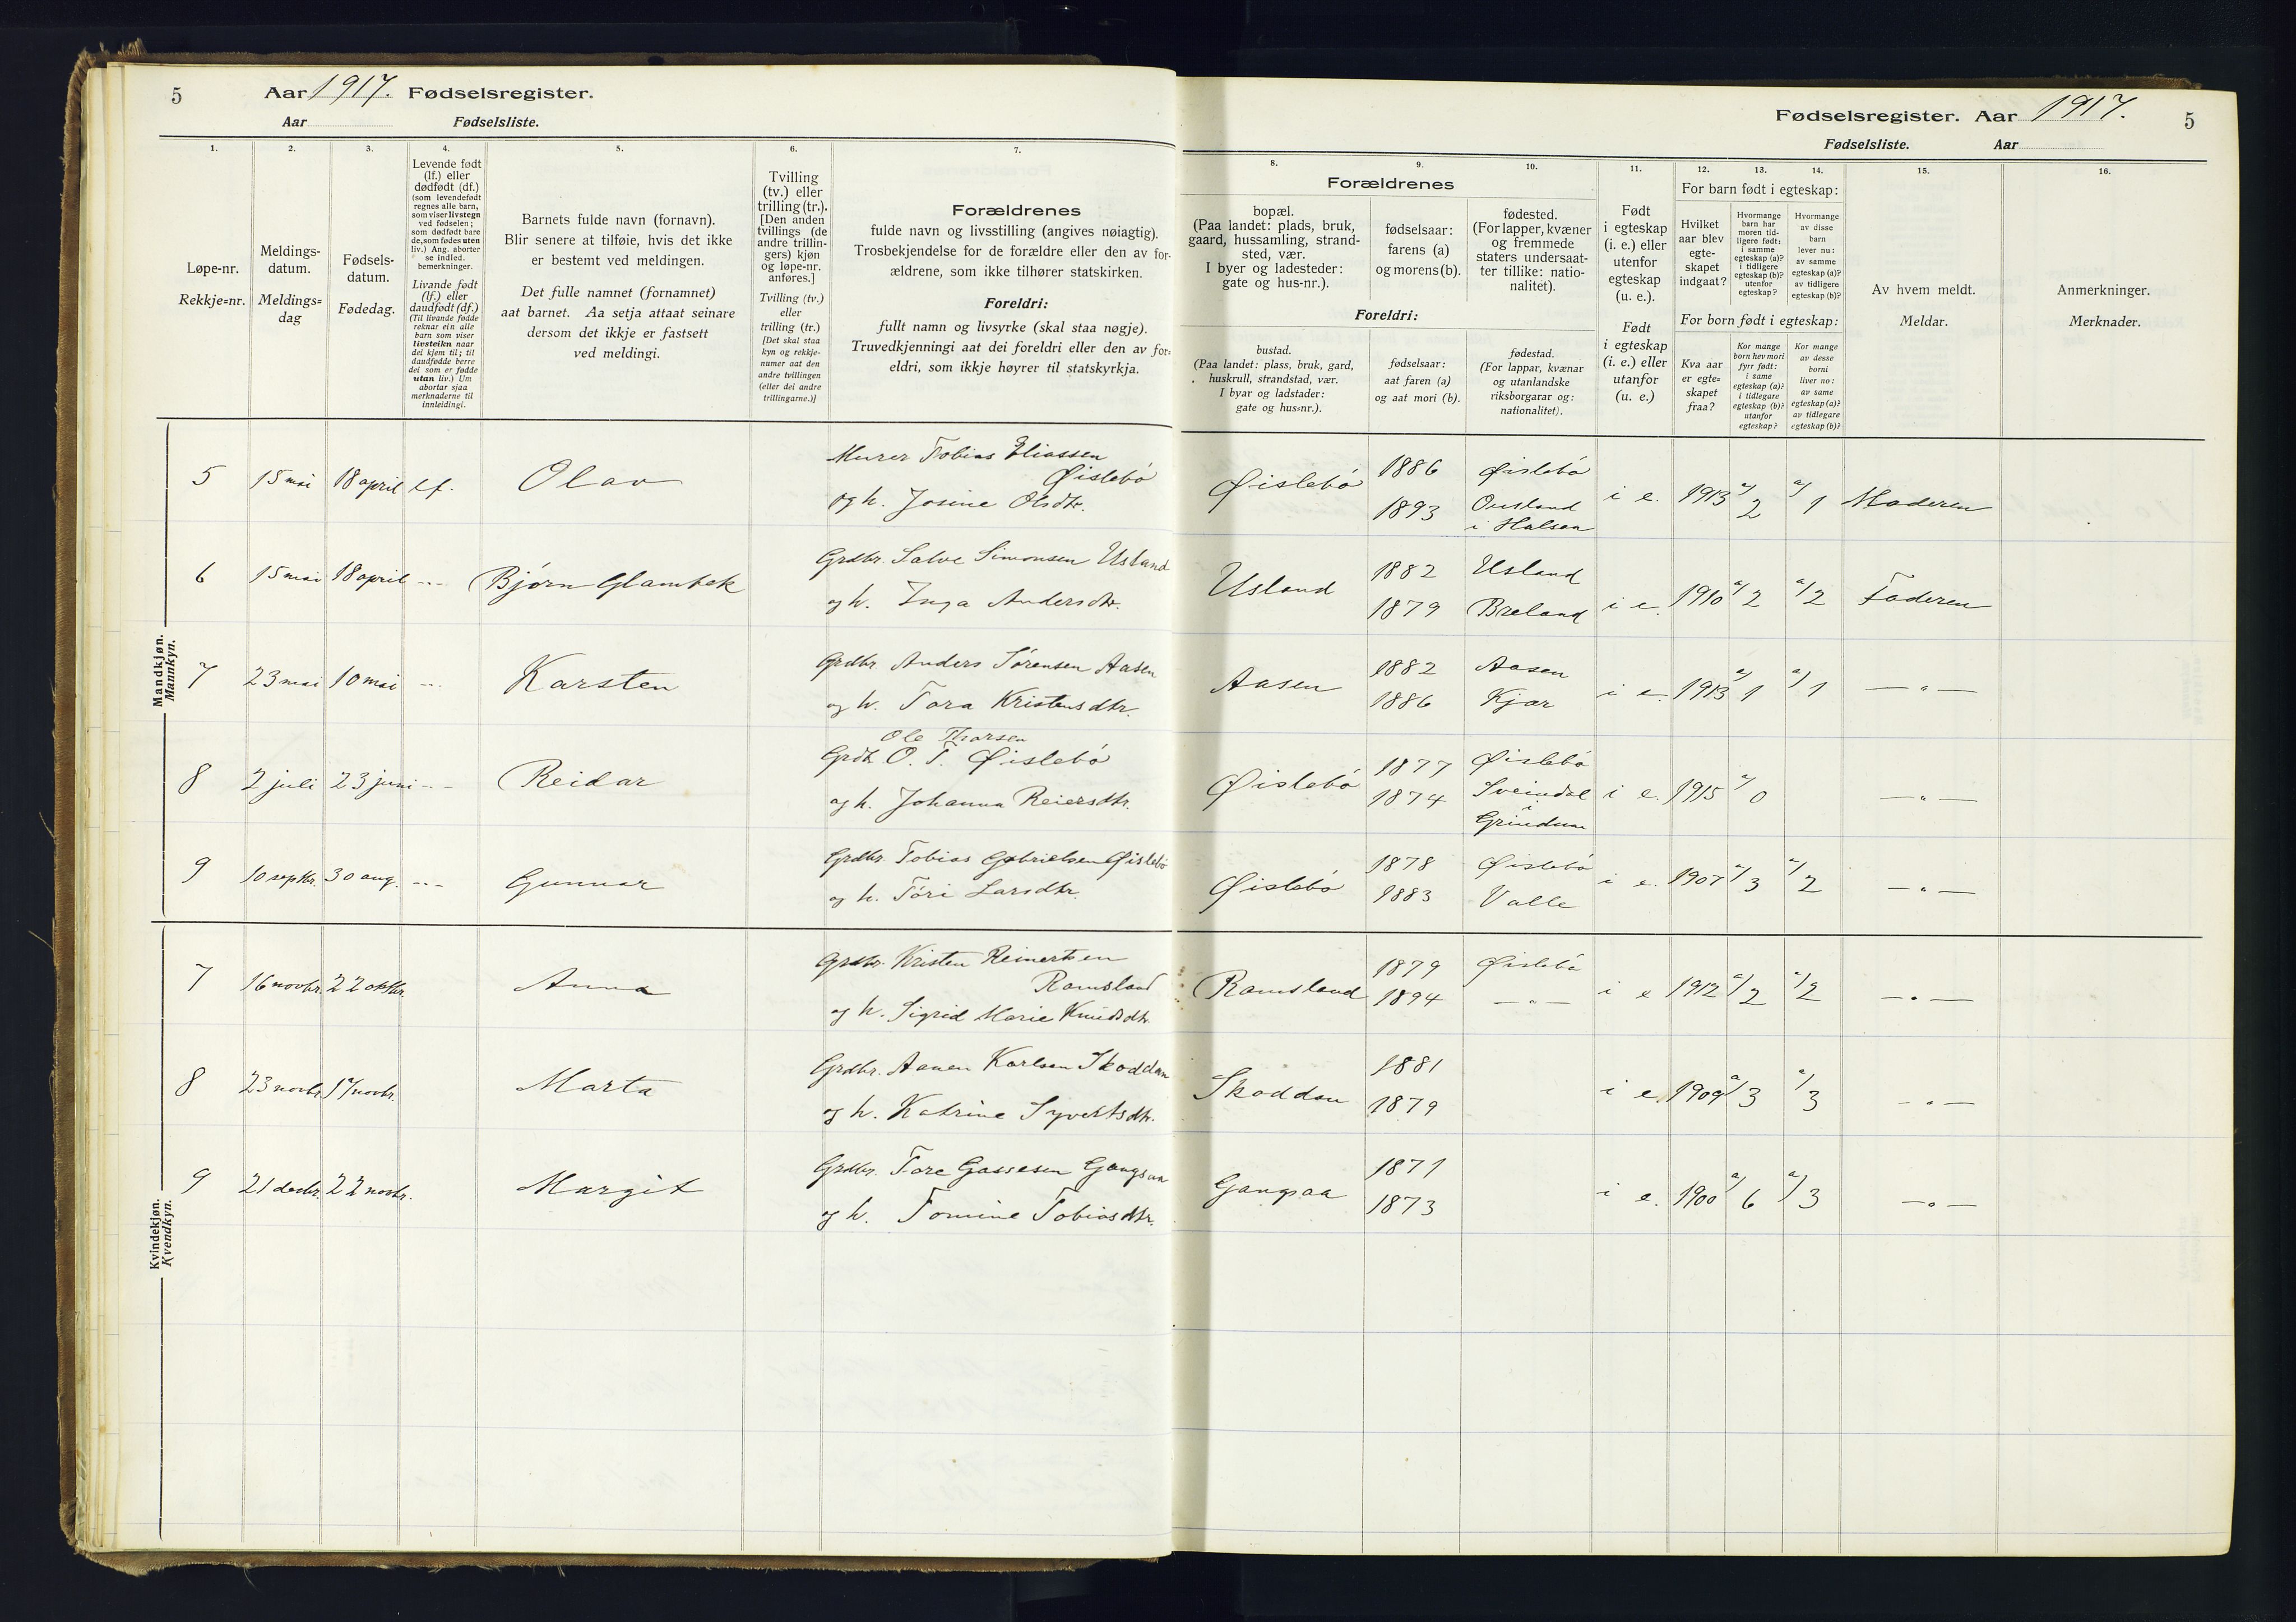 5
Aar 1917. Fødselsregister.
Aar Fødselsliste.
Fødselsregister. Aar 1917.
5
Fødselsliste. Aar
1.
Løpe-nr.
Rekkje=nr.
2.
Meldings-
datum.
Meldings=
dag
3.
Fødsels-
datum.
Fødedag.
4.
Levende født
(lf.) eller
dødfødt (df.)
(som levendefødt
regnes alle barn,
som viser livstegn
ved fødselen;
som dødfødt bare
de, som fødes uten
liv.) Ang. aborter
se indled.
bemerkninger.
Livande født
(lf.) eller
daudfødt (df.)
(Til livande fødde
reknar ein alle
barn som viser
livsteikn naar
dei kjem til; til
daudfødde berre
dei som er fødde
utan liv.) Um
abortar sjaa
merknaderne til
innleidingi.
5.
Barnets fulde navn (fornavn).
Blir senere at tilføie, hvis det ikke
er bestemt ved meldingen.
Det fulle namnet (fornamnet)
aat barnet. Aa setja attaat seinare
dersom det ikkje er fastsett
ved meldingi.
6.
Tvilling
(tv.) eller
trilling (tr.).
[Den anden
tvillings (de
andre trillin-
gers) kjøn
og løpe-nr.
anføres.]
Tvilling (tv.)
eller
trilling (tr.)
[Det skal staa
kyn og rekkje-
numer aat den
andre tvillingen
(eller dei andre
trillingarne.)]
7.
Forældrenes
fulde navn og livsstilling (angives nøiagtig).
Trosbekjendelse for de forældre eller den av for-
ældrene, som ikke tilhører statskirken.
Foreldri:
fullt namn og livsyrke (skal staa nøgje).
Truvedkjenningi aat dei foreldri eller den av for=
eldri, som ikkje høyrer til statskyrkja.
8.
Forældrenes
bopæl.
(Paa landet: plads, bruk,
gaard, hussamling, strand-
sted, vær.
I byer og ladesteder:
gate og hus-nr.).
Foreldri:
bustad.
(Paa landet: plass, bruk, gard,
huskrull, strandstad, vær.
I byar og ladstader:
gate og hus=nr.).
9.
fødselsaar:
farens (a)
og morens (b).
fødselsaar:
aat faren (a)
og aat mori (b).
10.
fødested.
(For lapper, kvæner
og fremmede
staters undersaat-
ter tillike: natio-
nalitet).
fødestad.
(For lappar, kvænar
og utanlandske
riksborgarar og:
nationalitet).
11.
Født
i egteskap
(i. e.) eller
utenfor
egteskap
(u. e.).
Født
i egteskap
(i. e.) eller
utanfor
(u. e.)
12. 13. 14.
For barn født i egteskap:
Hvilket
aar blev
egte-
skapet
indgaat?
Hvormange
barn har
moren tid-
ligere født:
i samme
egteskap (a)?
i tidligere
egteskap (b)?
utenfor
egteskap?
Hvormange
av disse
barn
lever nu:
av samme
egteskap (a)?
av tidligere
egteskap (b)?
For born født i egteskap:
Kva aar
er egte=
skapet
fraa?
Kor mange
born hev mori
fyrr født:
i same
egteskap (a)?
i tidlegare
egteskap (b)?
utanfor
egteskap?
Kor mange
av desse
borni
liver no:
av same
egteskap (a)?
av tidlegare
egteskap (b)?
15.
Av hvem meldt.
Meldar.
16.
Anmerkninger.
Merknader.
Mandkjøn.
Mannkyn.
5 15 mai 18 april lf. Olav Murer Tobias Eliassen
Øislebö
og h. Josine Olsdtr.
Øislebö 1886 Øislebö
1893 Ousland
i Halsaa
i e. 1913 a/2 a/1 Moderen
6 15 mai 18 april -.- Bjørn Glambek Grdbr. Salve Simonsen Usland
og h. Inga Andersdtr.
Usland 1882 Usland
1879 Breland
i e. 1910 a/2 a/2 Faderen
7 23 mai 10 mai -.- Karsten Grdbr. Anders Sørensen Aasen
og h. Tora Kristensdtr.
Aasen 1882 Aasen
1886 Kjær
i e. 1913 a/1 a/1 — „ —
8 2 juli 23 juni -.- Reidar Ole Thorsen
Grdb. O. T. Øislebö
og h. Johanna Reiersdtr.
Øislebö 1877 Øislebö
1874 Sveindal
i
Grindum
i e. 1915 a/0 — „ —
9 10 septbr. 30 aug. -.- Gunnar Grdbr. Tobias Gabrielsen Øislebö
og h. Töri Larsdtr.
Øislebö 1878 Øislebö
1883 Valle
i e. 1907 a/3 a/2 — „ —
Kvindekjøn.
Kvendkyn.
7 16 novbr. 22 oktbr. Anna Grdbr. Kristen Reinertsen
Ramsland
og h. Sigrid Marie Knudsdtr.
Ramsland 1879 Øislebö
1894 — „ —
i e 1912 a/2 a/2 — „ —
8 23 novbr. 17 novbr. Marta Grdbr. Aanen Karlsen Skoddan
og h. Katrine Syvertsdtr.
Skoddan 1881
1879
i e. 1909 a/3 a/3 — „ —
9 21 decbr. 22 novbr. Margit Grdbr. Tore Gassesen Gangsaa
og h. Tomine Tobiasdtr.
Gangsaa 1871
1873
i e. 1900 a/6 a/3 — „ —